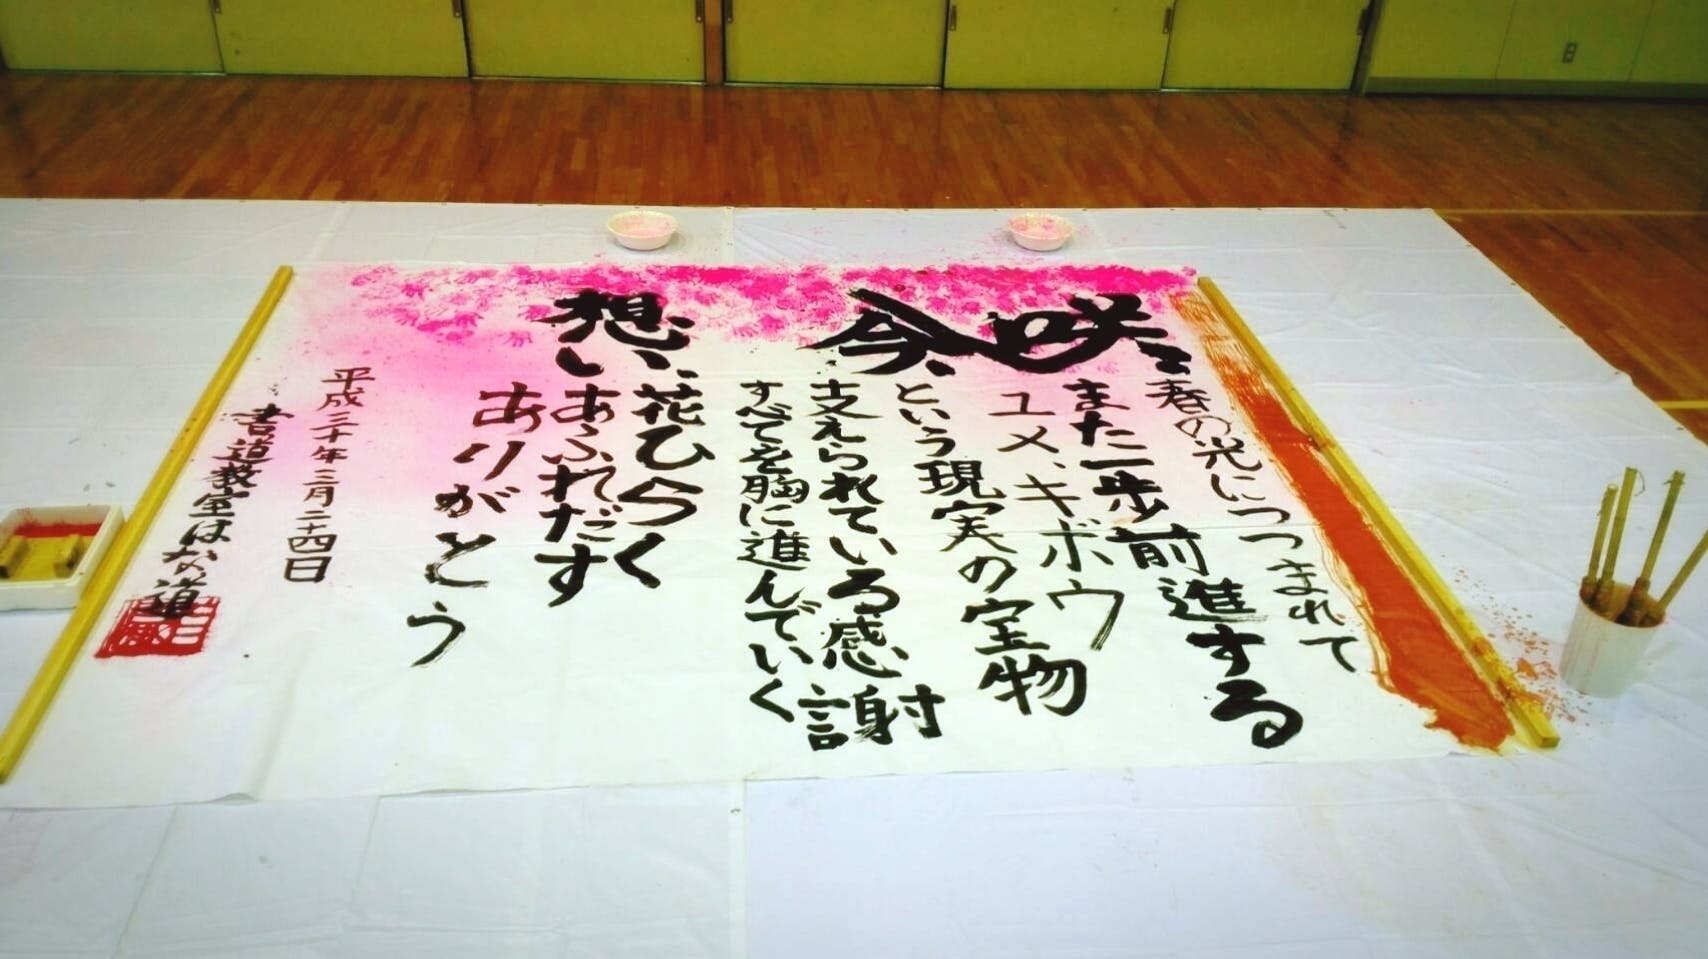 咲く
春の光につつまれて
また一歩前進する
ユメ、キボウ
という現実の宝物
今、
支えられている感謝
すべてを胸に進んでいく
想い、
花ひらく
あふれだす
ありがとう
平成三十年三月二十四日
書道教室はな道